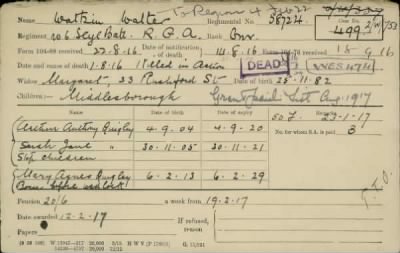 Name Watkin Walter Regimental No. 58724 Case No.
Regiment 106 Sege Batt. R.G.A. Rank Gnr. 2/W/753
Form 104-88 received 22-8-16 Date of notification of death 14.8.16 Form 104-76 received 15-9-16
Date and cause of death 1-8-16 Killed in Action DEAD
Widow Margaret, 33 Rushford St Date of birth 25-11-82
Children:— Middlesborough
Name Date of birth Date of expiry
Arthur Anthony Quigley 4-9-04 4-9-20
Sarah Jane " 30-11-05 30-11-21
Step children
Mary Agnes Quigley 6-2-13 6-2-29
Born before wedlock
No. for whom S.A. is paid 3
23-1-17
P.T.O.
Pension 20/6 a week from 19-2-17
Date awarded 12-2-17 If refused, reason